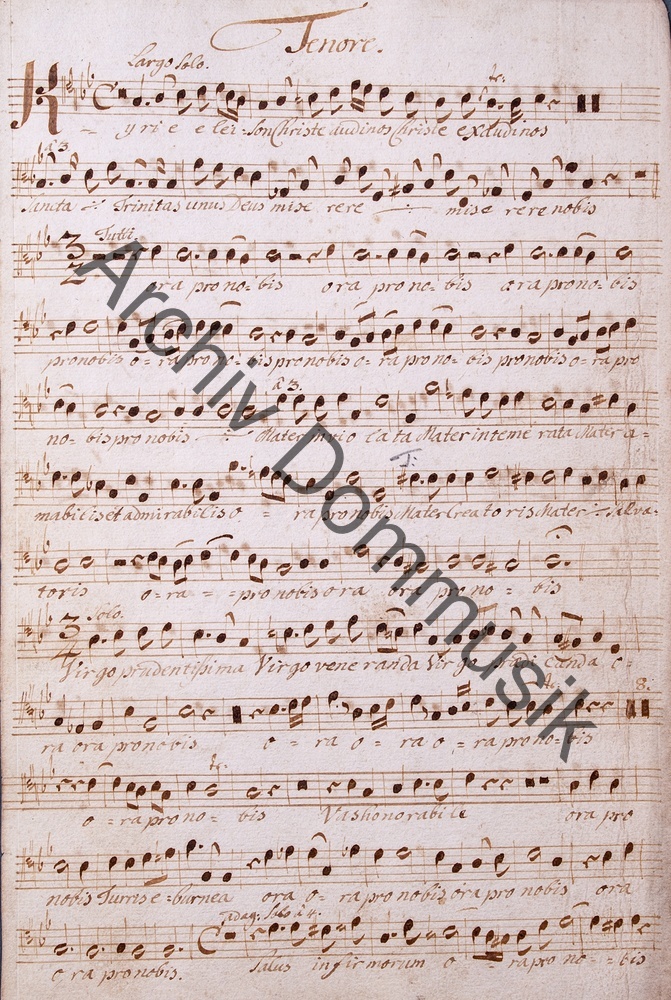 Tenore.
Largo Solo.
Kyrie elei=son Christe audi nos Christe exaudi nos
à 3
Sancta Trinitas unus Deus mise rere mise rere nobis
Tutti.
ora pro no=bis ora pro no=bis ora pro no=bis
pro nobis o=ra pro no=bis pro nobis o=ra pro no=bis pro nobis o=ra pro
à 3.
no=bis pro nobis. Mater invio lata Mater inteme rata Mater a=
mabilis et admirabilis o = ra pro nobis Mater Creatoris Mater Salva=
toris o=ra = =pro nobis ora ora pro no = bis
Solo.
Virgo prudentissima Virgo vene randa Virgo praedi canda o=
8.
ra ora pro nobis o = ra o = ra o = ra pro no=bis
o =ra pro no= bis Vas honorabile ora pro
nobis Turris e=burnea ora o= ra pro nobis ora pro nobis ora
adag: Solo à 4.
o ra pro nobis. Salus infirmorum o = ra pro no==bis
Archiv Dommusik